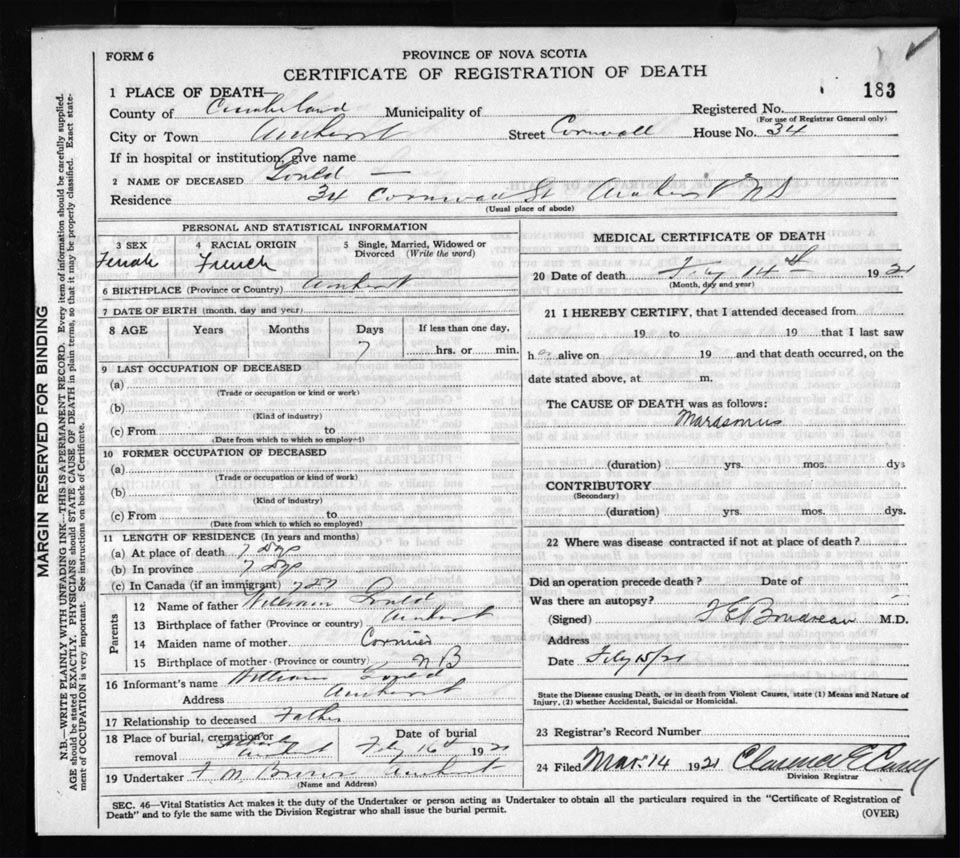 FORM 6
PROVINCE OF NOVA SCOTIA
CERTIFICATE OF REGISTRATION OF DEATH
183
1 PLACE OF DEATH
County of Cumberland Municipality of Registered No.
(For use of Registrar General only)
City or Town Amherst Street Cornwall House No. 34
If in hospital or institution, give name
2 NAME OF DECEASED Gould —
Residence 34 Cornwall St Amherst NS
(Usual place of abode)
PERSONAL AND STATISTICAL INFORMATION
3 SEX 4 RACIAL ORIGIN 5 Single, Married, Widowed or Divorced (Write the word)
Female French
6 BIRTHPLACE (Province or Country) Amherst
7 DATE OF BIRTH (month, day and year)
8 AGE Years Months Days If less than one day,
7 hrs. or min.
9 LAST OCCUPATION OF DECEASED
(a)
(Trade or occupation or kind or work)
(b)
(Kind of industry)
(c) From to
(Date from which to which so employed)
10 FORMER OCCUPATION OF DECEASED
(a)
(Trade or occupation or kind of work)
(b)
(Kind of industry)
(c) From to
(Date from which to which so employed)
11 LENGTH OF RESIDENCE (In years and months)
(a) At place of death 7 dys
(b) In province 7 dys
(c) In Canada (if an immigrant) 7 dys
Parents
12 Name of father William Gould
13 Birthplace of father (Province or country) Amherst
14 Maiden name of mother Cormier
15 Birthplace of mother (Province or country) NB
16 Informant's name William Gould
Address Amherst
17 Relationship to deceased Father
18 Place of burial, cremation or removal Amherst Date of burial Feby 16th 1921
19 Undertaker F M Brown Amherst
(Name and Address)
MEDICAL CERTIFICATE OF DEATH
20 Date of death Feby 14th 1921
(Month, day and year)
21 I HEREBY CERTIFY, that I attended deceased from
19 to 19 that I last saw
h er alive on 19 and that death occurred, on the
date stated above, at m.
The CAUSE OF DEATH was as follows:
Marasmus
(duration) yrs. mos. dys
CONTRIBUTORY
(Secondary)
(duration) yrs. mos. dys.
22 Where was disease contracted if not at place of death?
Did an operation precede death? Date of
Was there an autopsy?
(Signed) F E Boudreau M.D.
Address
Date Feby 15/21
State the Disease causing Death, or in death from Violent Causes, state (1) Means and Nature of
Injury, (2) whether Accidental, Suicidal or Homicidal.
23 Registrar's Record Number
24 Filed Mar. 14 1921 Clarence E Casey
Division Registrar
SEC. 46—Vital Statistics Act makes it the duty of the Undertaker or person acting as Undertaker to obtain all the particulars required in the "Certificate of Registration of
Death" and to fyle the same with the Division Registrar who shall issue the burial permit.
(OVER)
MARGIN RESERVED FOR BINDING
N.B.—WRITE PLAINLY WITH UNFADING INK—THIS IS A PERMANENT RECORD. Every item of information should be carefully supplied.
AGE should be stated EXACTLY. PHYSICIANS should STATE CAUSE OF DEATH in plain terms, so that it may be properly classified. Exact state-
ment of OCCUPATION is very important. See instructions on back of Certificate.